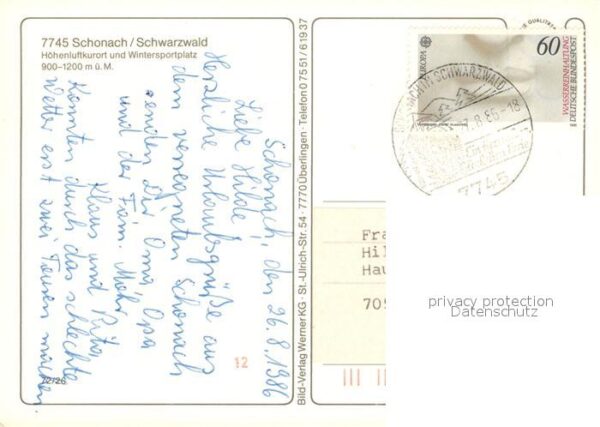 7745 Schonach / Schwarzwald
Höhenluftkurort und Wintersportplatz
900–1200 m ü. M.
Schonach, den 26.8.1986
Liebe Hilde!
Herzliche Urlaubsgrüße aus
dem verregneten Schonach
senden Dir Oma, Opa
und der Fam. Mohr
Klaus und Rita
Konnten durch das schlechte
Wetter erst zwei Touren machen.
12
Bild-Verlag Werner KG · St.-Ulrich-Str. 54 · 7770 Überlingen · Telefon 07551/61937
EUROPA
60
WASSERREINHALTUNG
DEUTSCHE BUNDESPOST
SCHWARZWALD
.8.86-18
7745
Fra
Hil
Hau
705
privacy protection
Datenschutz